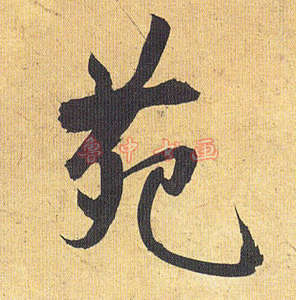 苑
鲁中书画